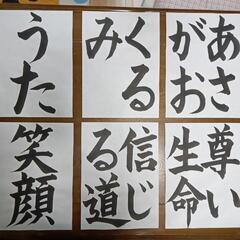 あさ
がお
くる
み
うた
尊い
生命
信じ
る道
笑顔